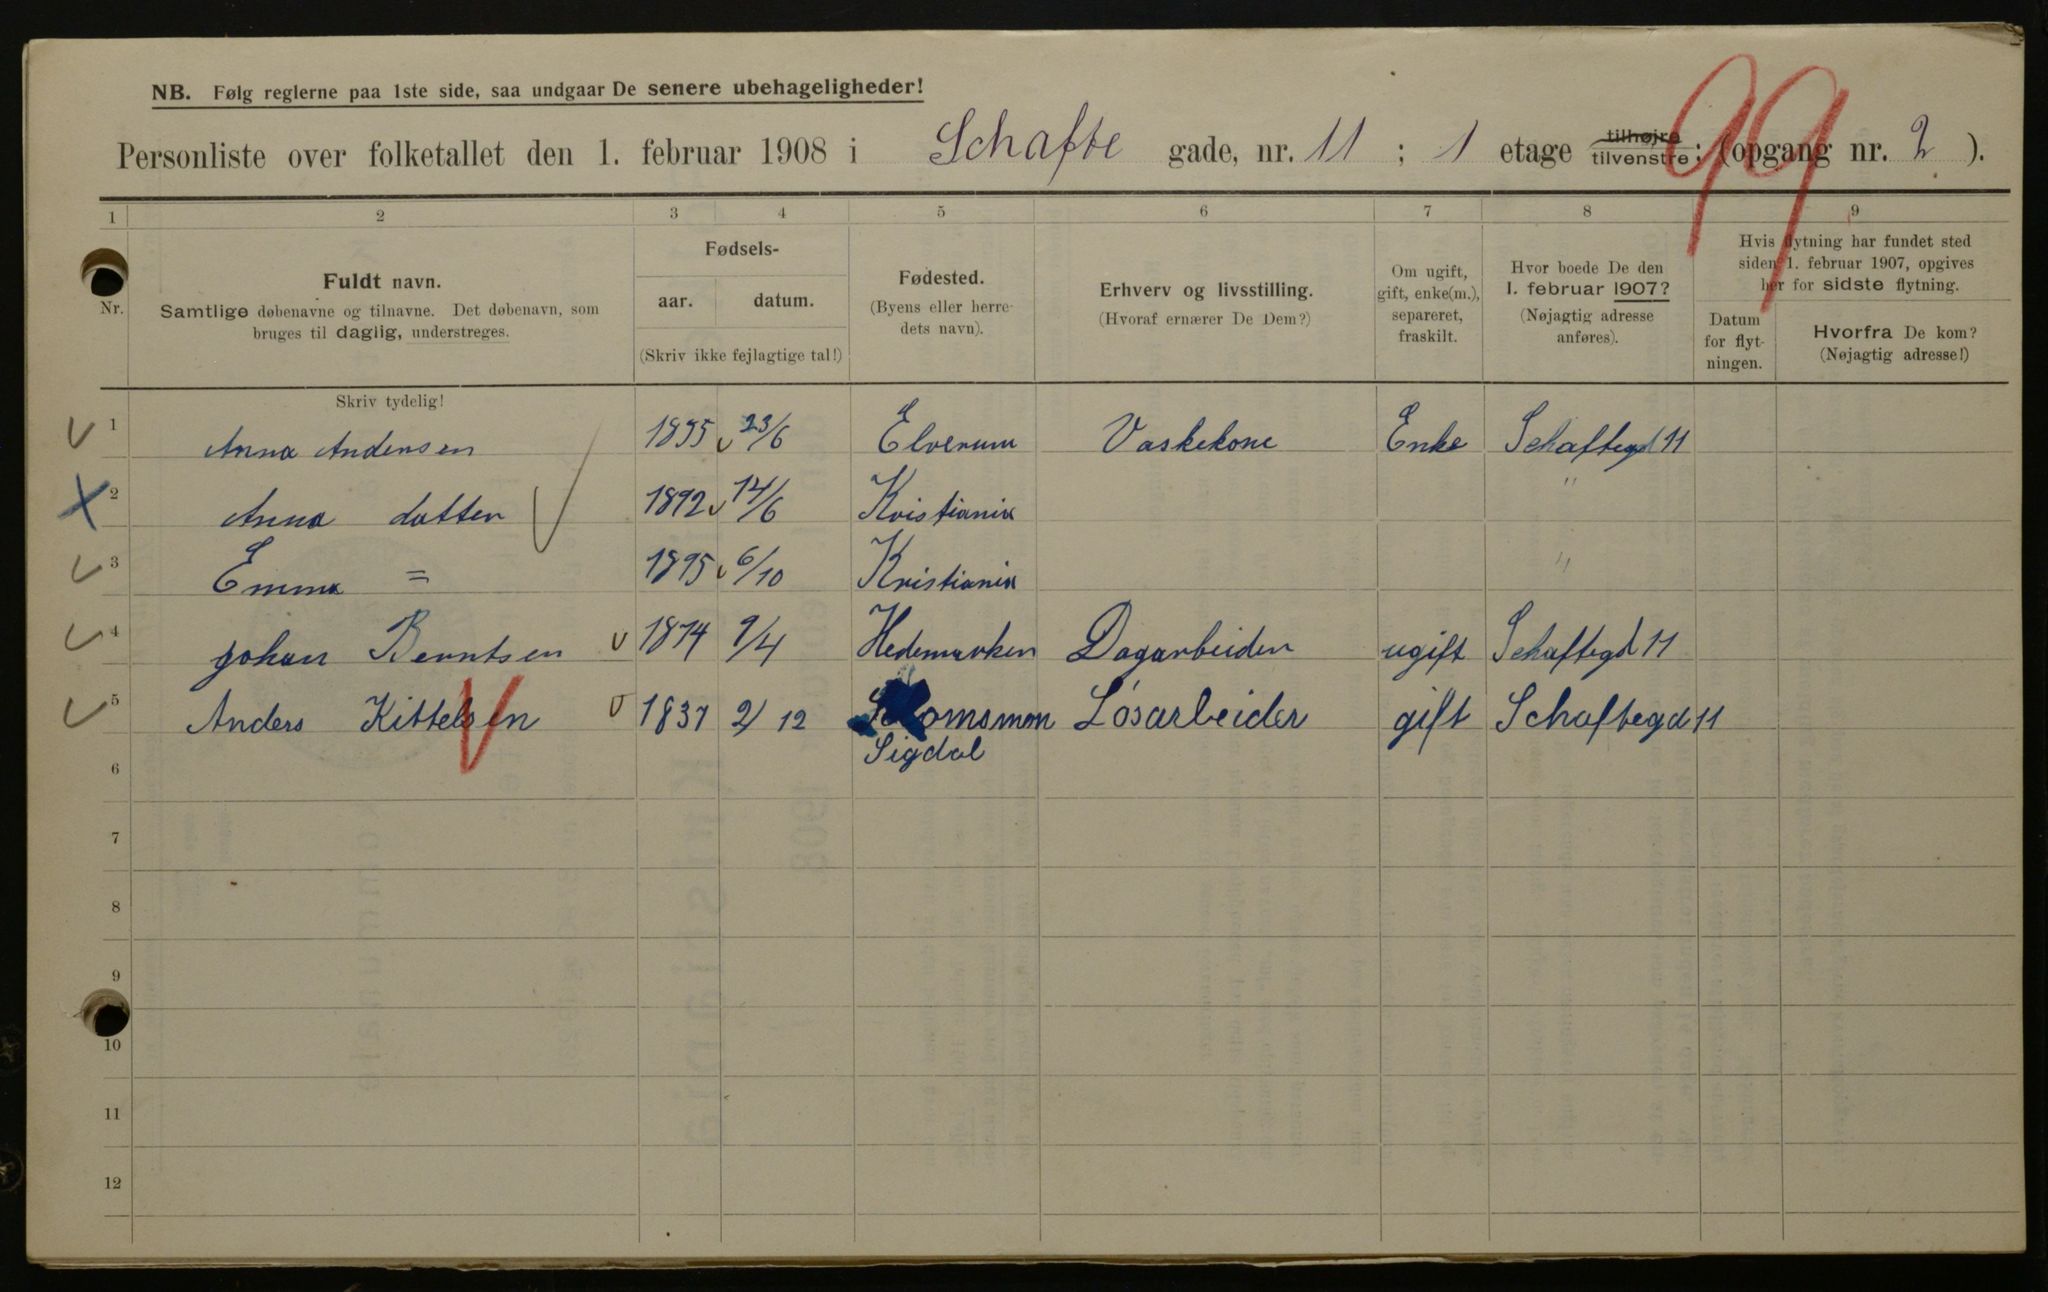 NB. Følg reglerne paa 1ste side, saa undgaar De senere ubehageligheder!
99
Personliste over folketallet den 1. februar 1908 i Schafte gade, nr. 11 ; 1 etage tilhøjre tilvenstre : (opgang nr. 2 ).
1 2 3 4 5 6 7 8 9
Nr.
Fuldt navn.
Samtlige døbenavne og tilnavne. Det døbenavn, som
bruges til daglig, understreges.
Fødsels-
aar. datum.
(Skriv ikke fejlagtige tal!)
Fødested.
(Byens eller herre-
dets navn).
Erhverv og livsstilling.
(Hvoraf ernærer De Dem?)
Om ugift,
gift, enke(m.),
separeret,
fraskilt.
Hvor boede De den
1. februar 1907?
(Nøjagtig adresse
anføres).
Hvis flytning har fundet sted
siden 1. februar 1907, opgives
her for sidste flytning.
Datum
for flyt-
ningen.
Hvorfra De kom?
(Nøjagtig adresse!)
Skriv tydelig!
1 Anna Andersen 1855 23/6 Elverum Vaskekone Enke Schaftegd 11
2 Anna datter 1892 14/6 Kristiania "
3 Emma = 1895 6/10 Kristiania "
4 Johan Berntsen 1874 9/4 Hedemarken Dagarbeider ugift Schaftegd 11
5 Anders Kittelsen 1837 2/12 Løsarbeider gift Schaftegd 11
Sigdal
6
7
8
9
10
11
12